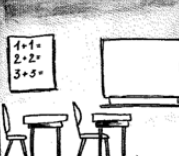 1+1=
2+2=
3+3=